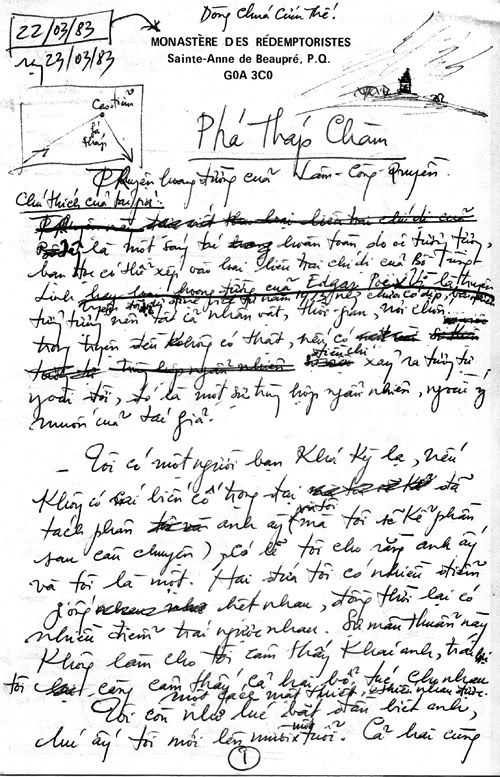 Dòng Chúa Cứu Thế!
22/03/83
23/03/83
MONASTÈRE DES RÉDEMPTORISTES
Sainte-Anne de Beaupré, P.Q.
G0A 3C0
Phá Tháp Chàm
Truyện hoang đường của Lâm-Công-Quyền
Chú thích của tác giả:
là một sáng tác hoàn toàn do óc tưởng tượng,
bạn đọc có thể xếp vào loại liêu trai chí dị của Bồ Tùng
Linh hay loại hoang đường của Edgar Poe. Vì là truyện
tưởng tượng nên tất cả nhân vật, thời gian, nơi chốn
trong truyện đều không có thật, nếu có
xảy ra tương tự
ngoài đời, đó là một sự trùng hợp ngẫu nhiên, ngoài ý
muốn của tác giả.
- Tôi có một người bạn khá kỳ lạ, nếu
không có biến cố trọng đại đã
tách phân anh ấy với tôi (mà tôi sẽ kể phần
sau câu chuyện), có lẽ tôi cho rằng anh ấy
và tôi là một. Hai đứa tôi có nhiều điểm
giống hệt nhau, đồng thời lại có
nhiều điểm trái ngược nhau. Sự mâu thuẫn này
không làm cho tôi cảm thấy khác anh, trái lại
tôi càng cảm thấy cả hai bổ túc cho nhau
một cách mật thiết,
Tôi còn nhớ lúc bắt đầu biết anh,
lúc ấy tôi mới lên mười một tuổi. Cả hai cùng
1